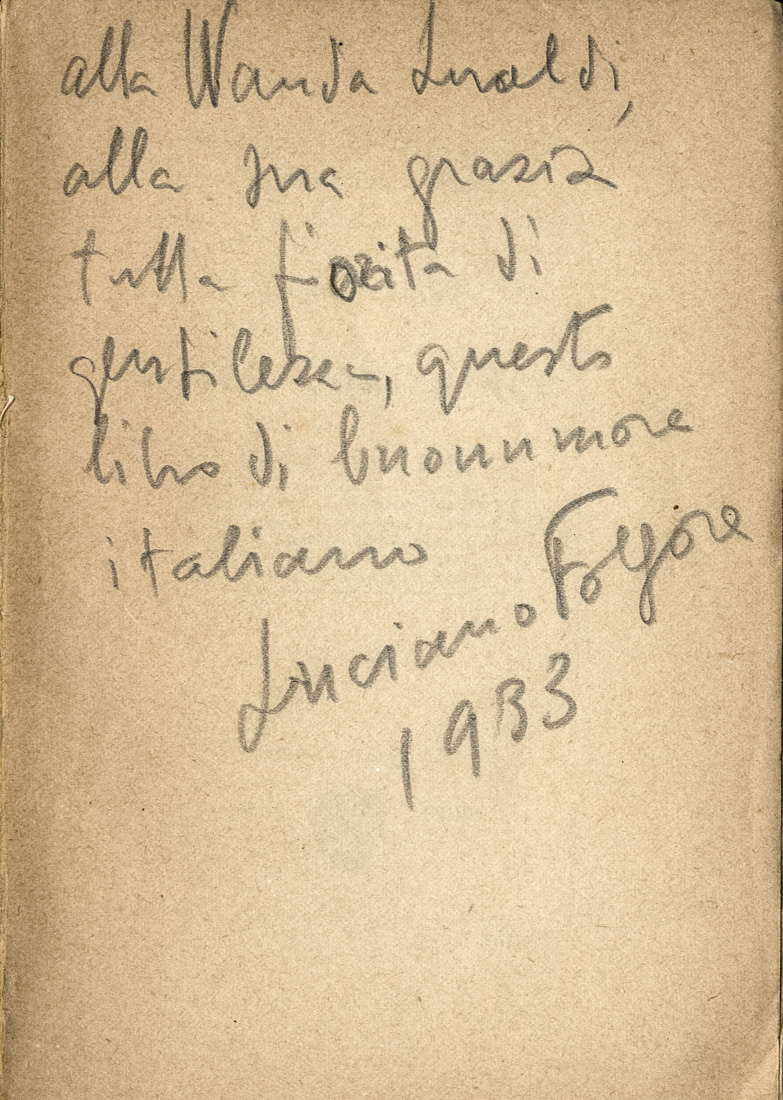 alla Wanda Luraldi,
alla sua grazia
tutta fiorita di
gentilezza, questo
libro di buonumore
italiano
Luciano Folgore
1933